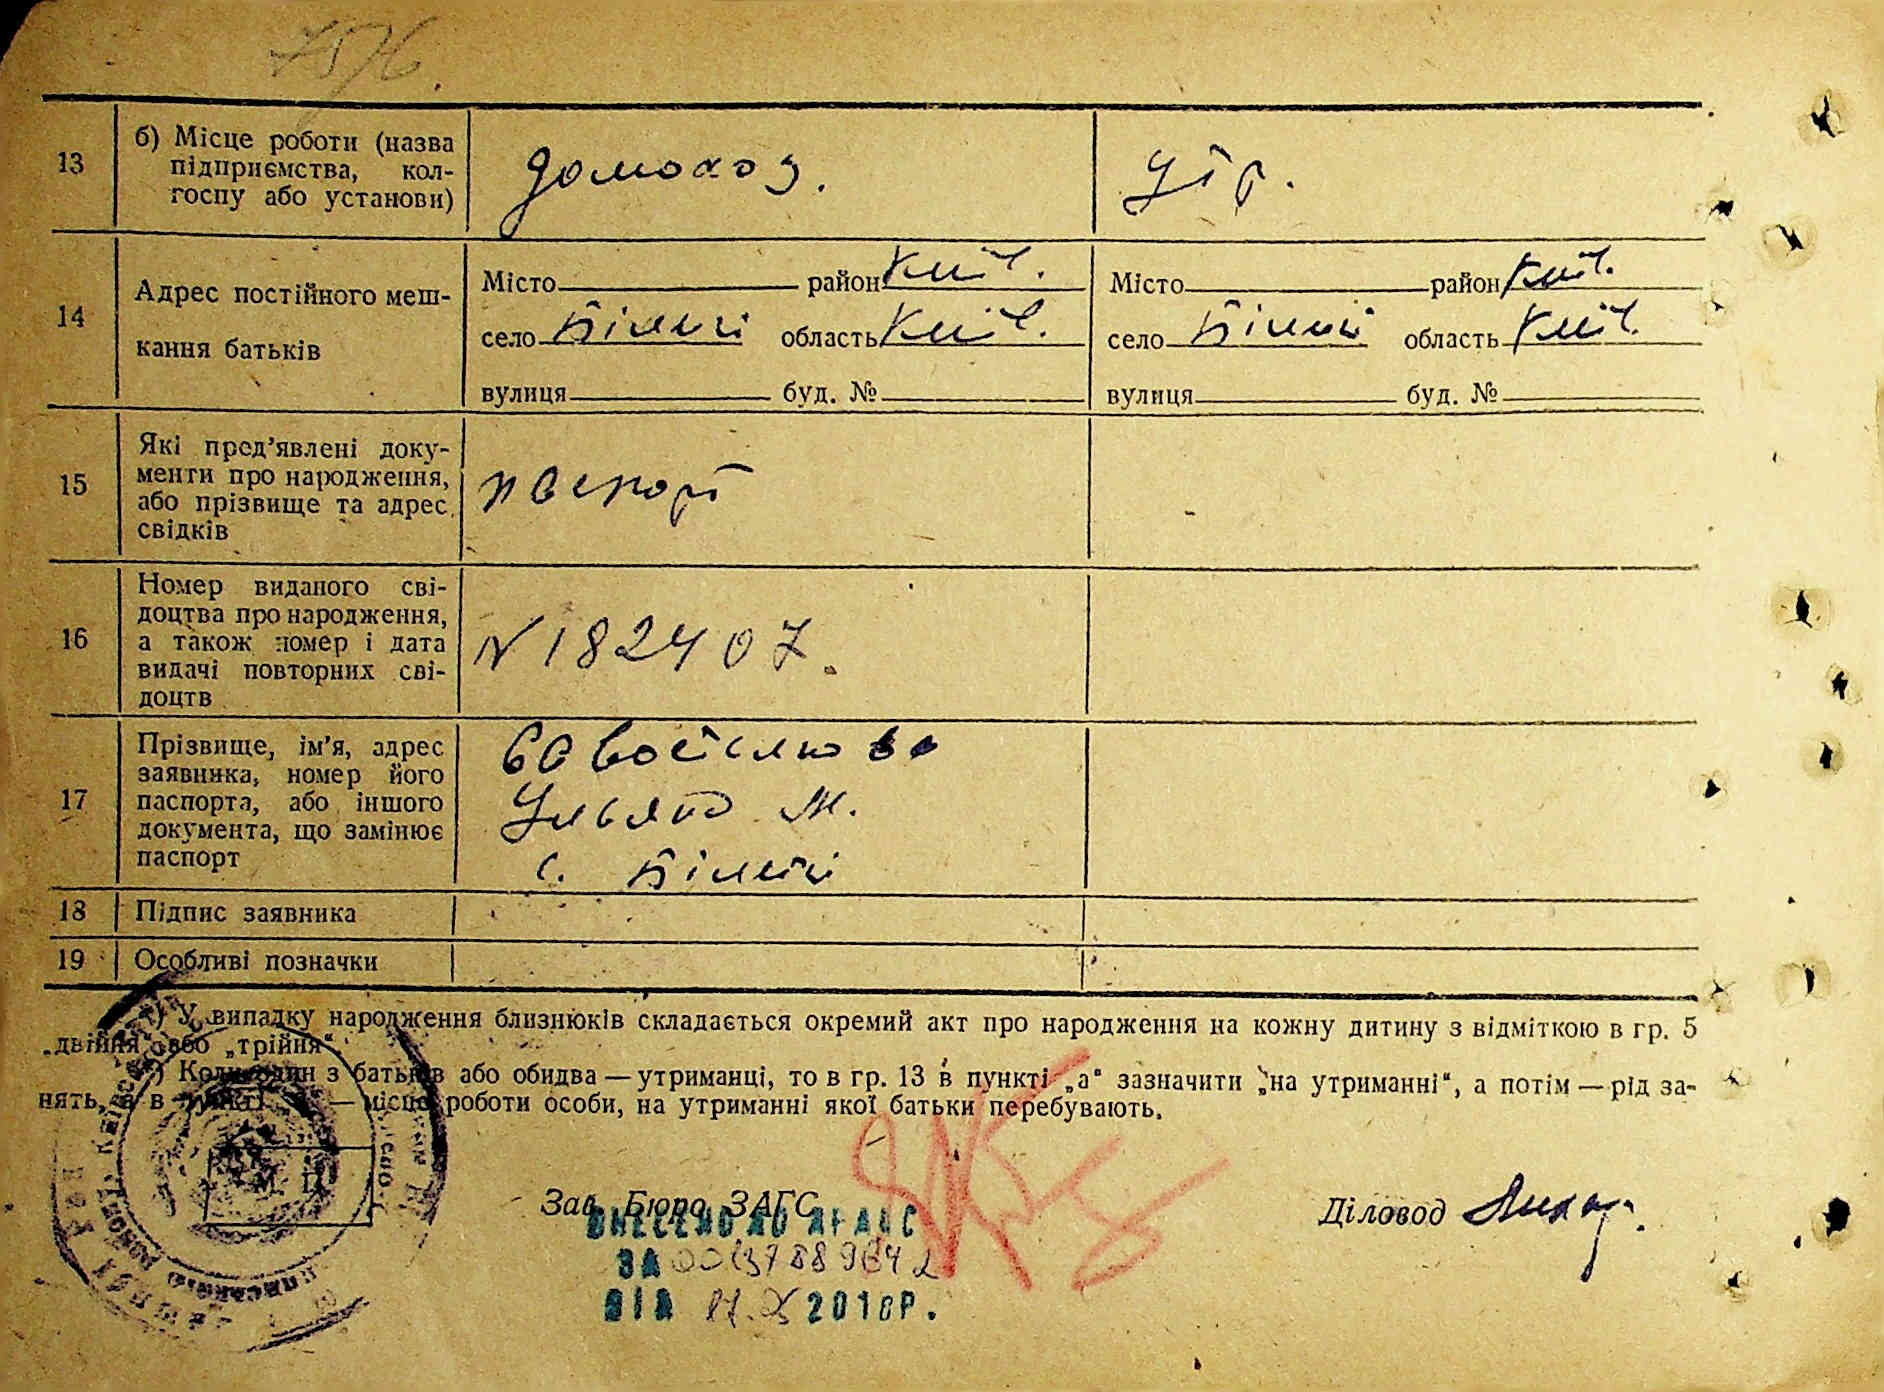 13
б) Місце роботи (назва
підприємства, кол-
госпу або установи)
домохоз.
утр.
14
Адрес постійного меш-
кання батьків
Місто район Київ.
село Біличі область Київ.
вулиця буд. №
Місто район Київ.
село Біличі область Київ.
вулиця буд. №
15
Які пред'явлені доку-
менти про народження,
або прізвище та адрес
свідків
паспорт
16
Номер виданого сві-
доцтва про народження,
а також номер і дата
видачі повторних сві-
доцтв
N 182407.
17
Прізвище, ім'я, адрес
заявника, номер його
паспорта, або іншого
документа, що замінює
паспорт
Ульяна М.
с. Біличі
18
Підпис заявника
19
Особливі позначки
¹) У випадку народження близнюків складається окремий акт про народження на кожну дитину з відміткою в гр. 5
„двійня“ або „трійня“.
²) Коли один з батьків або обидва — утриманці, то в гр. 13 в пункті „а“ зазначити „на утриманні“, а потім — рід за-
нять, а в пункті — місце роботи особи, на утриманні якої батьки перебувають.
Зав. Бюро ЗАГС
Діловод
ВНЕСЕНО ДО ДРАЦС
ЗА
ВІД 2018Р.